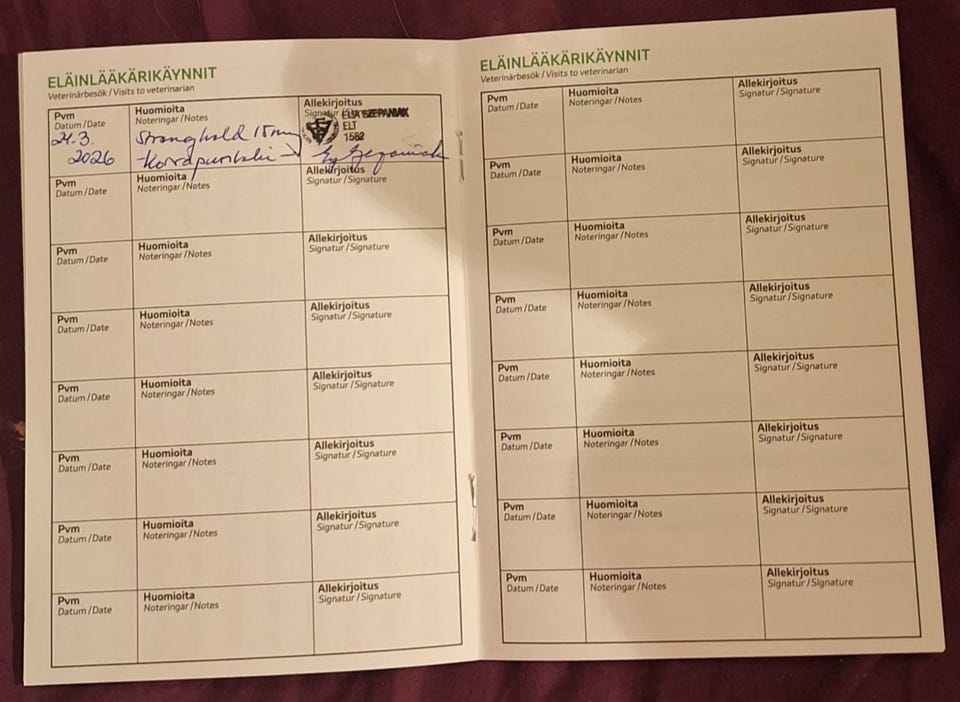 ELÄINLÄÄKÄRIKÄYNNIT
Veterinärbesök / Visits to veterinarian
Pvm
Datum / Date
24.3.
2026
Huomioita
Noteringar / Notes
Stronghold 15mg
Allekirjoitus
Signatur / Signature
SZEPANIAK
ELT
1582
Pvm
Datum / Date
Huomioita
Noteringar / Notes
Allekirjoitus
Signatur / Signature
Pvm
Datum / Date
Huomioita
Noteringar / Notes
Allekirjoitus
Signatur / Signature
Pvm
Datum / Date
Huomioita
Noteringar / Notes
Allekirjoitus
Signatur / Signature
Pvm
Datum / Date
Huomioita
Noteringar / Notes
Allekirjoitus
Signatur / Signature
Pvm
Datum / Date
Huomioita
Noteringar / Notes
Allekirjoitus
Signatur / Signature
Pvm
Datum / Date
Huomioita
Noteringar / Notes
Allekirjoitus
Signatur / Signature
Pvm
Datum / Date
Huomioita
Noteringar / Notes
Allekirjoitus
Signatur / Signature
ELÄINLÄÄKÄRIKÄYNNIT
Veterinärbesök / Visits to veterinarian
Pvm
Datum / Date
Huomioita
Noteringar / Notes
Allekirjoitus
Signatur / Signature
Pvm
Datum / Date
Huomioita
Noteringar / Notes
Allekirjoitus
Signatur / Signature
Pvm
Datum / Date
Huomioita
Noteringar / Notes
Allekirjoitus
Signatur / Signature
Pvm
Datum / Date
Huomioita
Noteringar / Notes
Allekirjoitus
Signatur / Signature
Pvm
Datum / Date
Huomioita
Noteringar / Notes
Allekirjoitus
Signatur / Signature
Pvm
Datum / Date
Huomioita
Noteringar / Notes
Allekirjoitus
Signatur / Signature
Pvm
Datum / Date
Huomioita
Noteringar / Notes
Allekirjoitus
Signatur / Signature
Pvm
Datum / Date
Huomioita
Noteringar / Notes
Allekirjoitus
Signatur / Signature